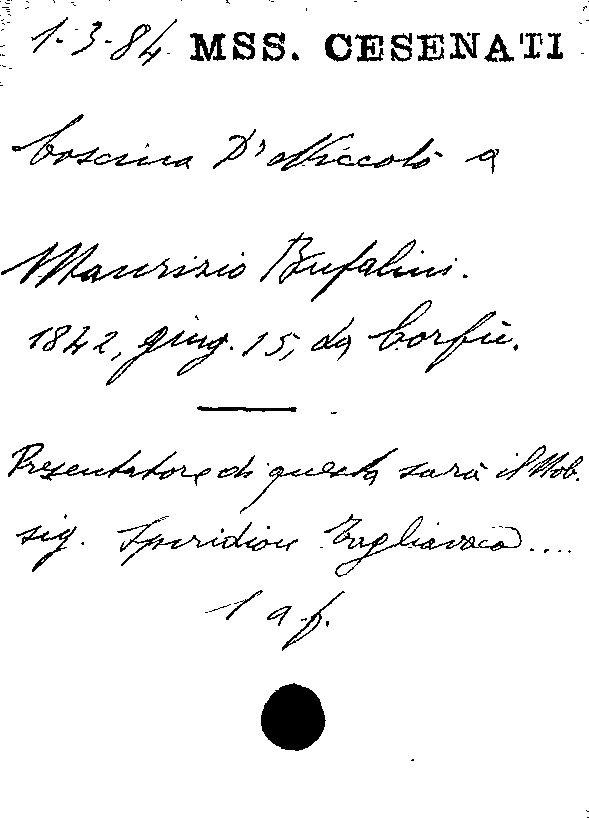 1-3-84 MSS. CESENATI
Coscina Dr Niccolò a
Maurizio Bufalini.
1842, giug. 15, da Corfù.
Presentatore di questa sarà il Nob.
sig. Spiridion Tagliavaca....
1 a f.